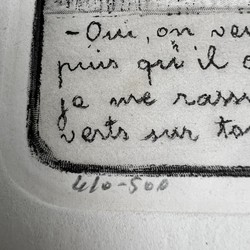 - Oui, on ve
puis qu'il e
je me rass
verts sur ta
410-500